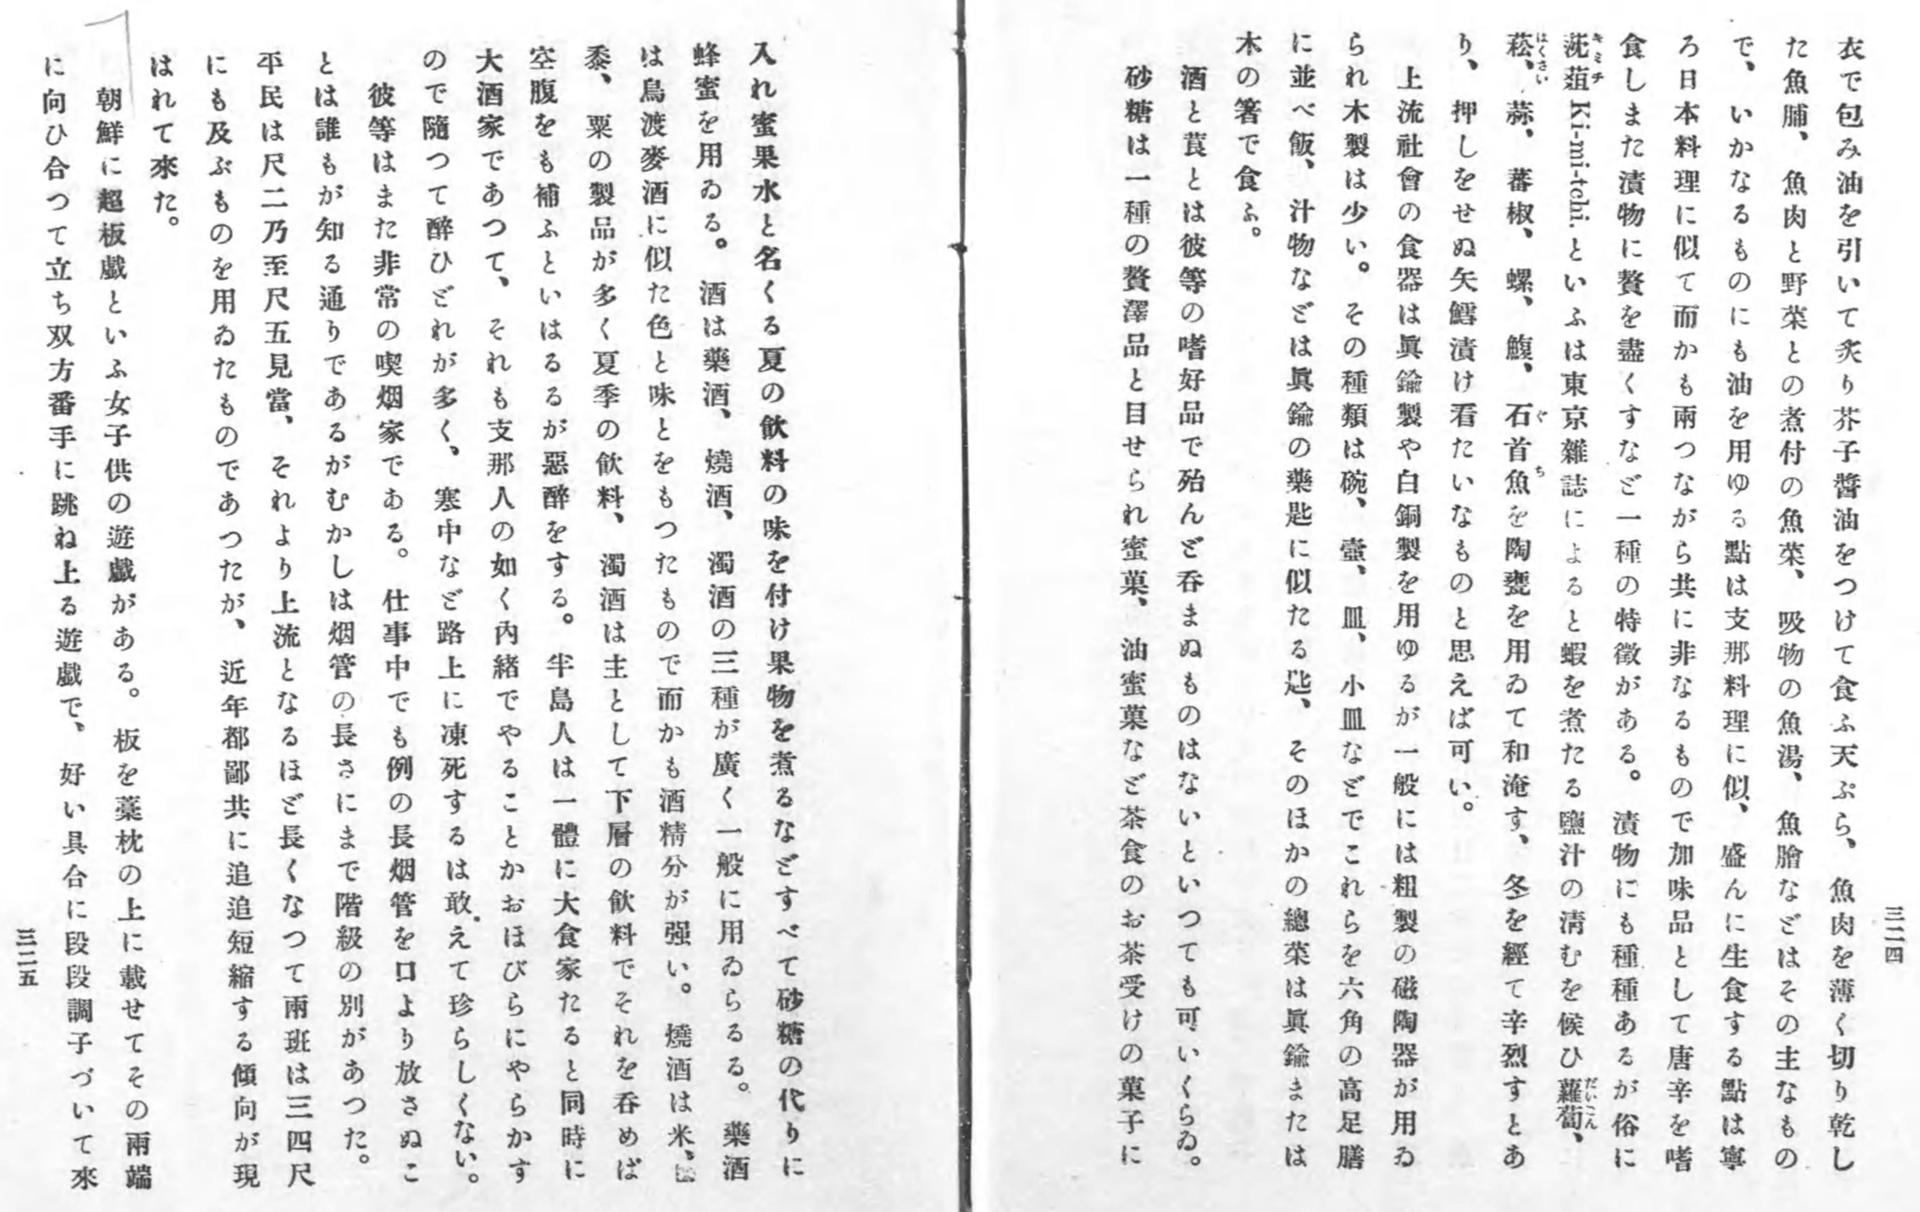 衣で包み油を引いて炙り芥子醬油をつけて食ふ天ぷら、魚肉を薄く切り乾し
た魚脯、魚肉と野菜との煮付の魚菜、吸物の魚湯、魚膾などはその主なもの
で、いかなるものにも油を用ゆる點は支那料理に似、盛んに生食する點は寧
ろ日本料理に似て而かも兩つながら共に非なるもので加味品として唐辛を嗜
食しまた漬物に贅を盡くすなど一種の特徵がある。漬物にも種種あるが俗に
沈葅 Ki-mi-tchi. といふは東京雜誌によると蝦を煮たる鹽汁の淸むを候ひ蘿蔔、
菘、蒜、蕃椒、螺、鰒、石首魚を陶甕を用ゐて和淹す、冬を經て辛烈すとあ
り、押しをせぬ矢鱈漬け看たいなものと思えば可い。
上流社會の食器は眞鍮製や白銅製を用ゆるが一般には粗製の磁陶器が用ゐ
られ木製は少い。その種類は碗、壺、皿、小皿などでこれらを六角の高足膳
に並べ飯、汁物などは眞鍮の藥匙に似たる匙、そのほかの總菜は眞鍮または
木の箸で食ふ。
酒と莨とは彼等の嗜好品で殆んど呑まぬものはないといつても可いくらゐ。
砂糖は一種の贅澤品と目せられ蜜菓、油蜜菓など茶食のお茶受けの菓子に
三二四
入れ蜜果水と名くる夏の飮料の味を付け果物を煮るなどすべて砂糖の代りに
蜂蜜を用ゐる。酒は藥酒、燒酒、濁酒の三種が廣く一般に用ゐらるる。藥酒
は鳥渡麥酒に似た色と味とをもつたもので而かも酒精分が强い。燒酒は米、
黍、粟の製品が多く夏季の飮料、濁酒は主として下層の飮料でそれを呑めば
空腹をも補ふといはるるが惡醉をする。半島人は一體に大食家たると同時に
大酒家であつて、それも支那人の如く內緖でやることかおほびらにやらかす
ので隨つて醉ひどれが多く、寒中など路上に凍死するは敢えて珍らしくない。
彼等はまた非常の喫烟家である。仕事中でも例の長烟管を口より放さぬこ
とは誰もが知る通りであるがむかしは烟管の長さにまで階級の別があつた。
平民は尺二乃至尺五見當、それより上流となるほど長くなつて兩班は三四尺
にも及ぶものを用ゐたものであつたが、近年都鄙共に追追短縮する傾向が現
はれて來た。
朝鮮に超板戲といふ女子供の遊戲がある。板を藁枕の上に載せてその兩端
に向ひ合つて立ち双方番手に跳ね上る遊戲で、好い具合に段段調子づいて來
三二五